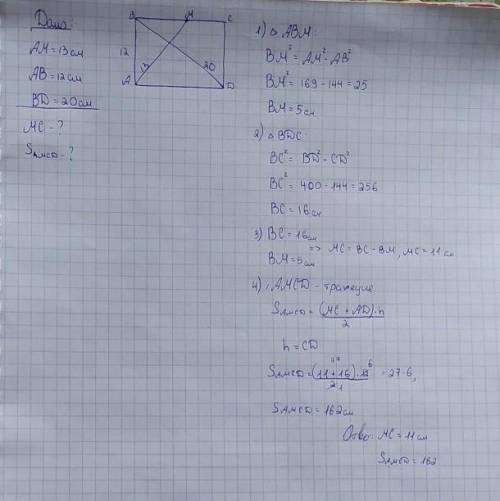 Дано:
AM = 13 см
AB = 12 см
BD = 20 см
MC - ?
S AMCD - ?
B M C
12
13
20
A D
1) △ ABM:
BM² = AM² - AB²
BM² = 169 - 144 = 25
BM = 5 см
2) △ BDC:
BC² = BD² - CD²
BC² = 400 - 144 = 256
BC = 16 см
3) BC = 16 см
BM = 5 см
=> MC = BC - BM, MC = 11 см
4) AMCD - трапеция
S AMCD = (MC + AD)·h
2
h = CD
6
S AMCD = (11 + 16)·12 = 27·6,
2 1
S AMCD = 162 см
Ответ: MC = 11 см
S AMCD = 162